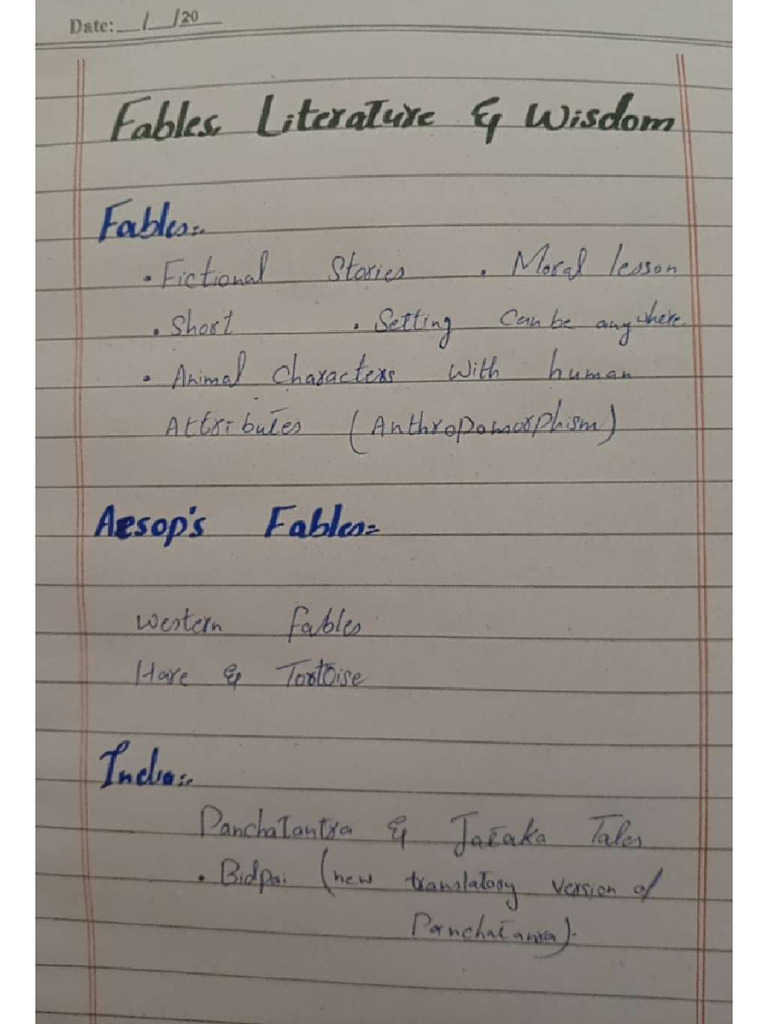 Date: __/__/20__
Fables, Literature & Wisdom
Fables:-
• Fictional Stories • Moral lesson
• Short • Setting can be anywhere.
• Animal characters with human
Attributes (Anthropomorphism)
Aesop's Fables:-
Western Fables
Hare & Tortoise
India:-
Panchatantra & Jataka Tales
• Bidpai (new translatory version of
Panchatantra).